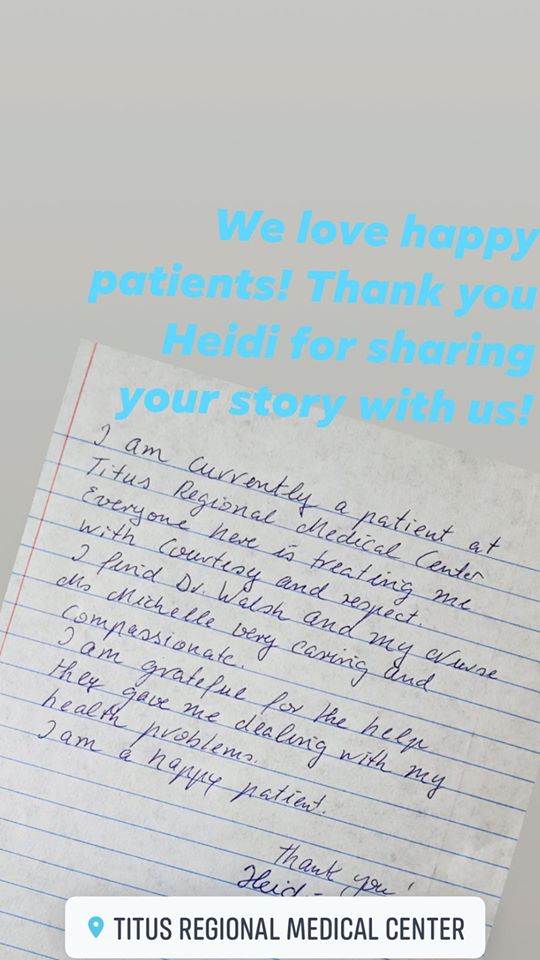 We love happy
patients! Thank you
Heidi for sharing
your story with us!
I am currently a patient at
Titus Regional Medical Center
Everyone here is treating me
with Courtesy and respect.
I find Dr. Walsh and my Nurse
Ms Michelle very caring and
Compassionate.
I am grateful for the help
they gave me dealing with my
health problems.
I am a happy patient.
Thank you!
Heidi
TITUS REGIONAL MEDICAL CENTER